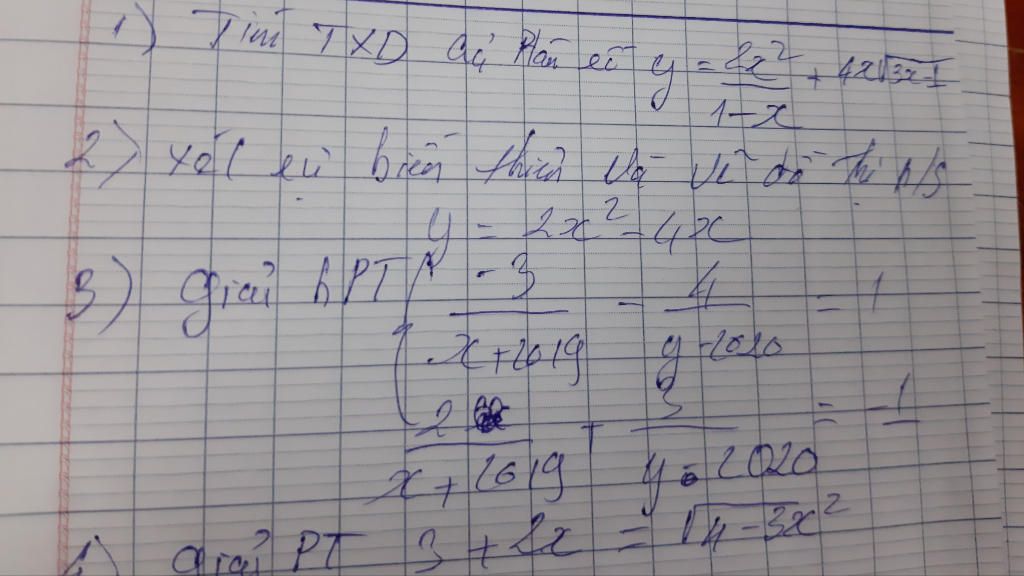 1) Tìm TXD của hàm số y = 2x² / (1-x) + 4x√(3x-1)
2) xét sự biến thiên và vẽ đồ thị h/s
y = 2x² - 4x
3) Giải hPT { -3 / (x+2019) - 4 / (y-2020) = 1
2 / (x+2019) + 3 / (y-2020) = -1
4) Giải PT 3 + 2x = √(4-3x²)